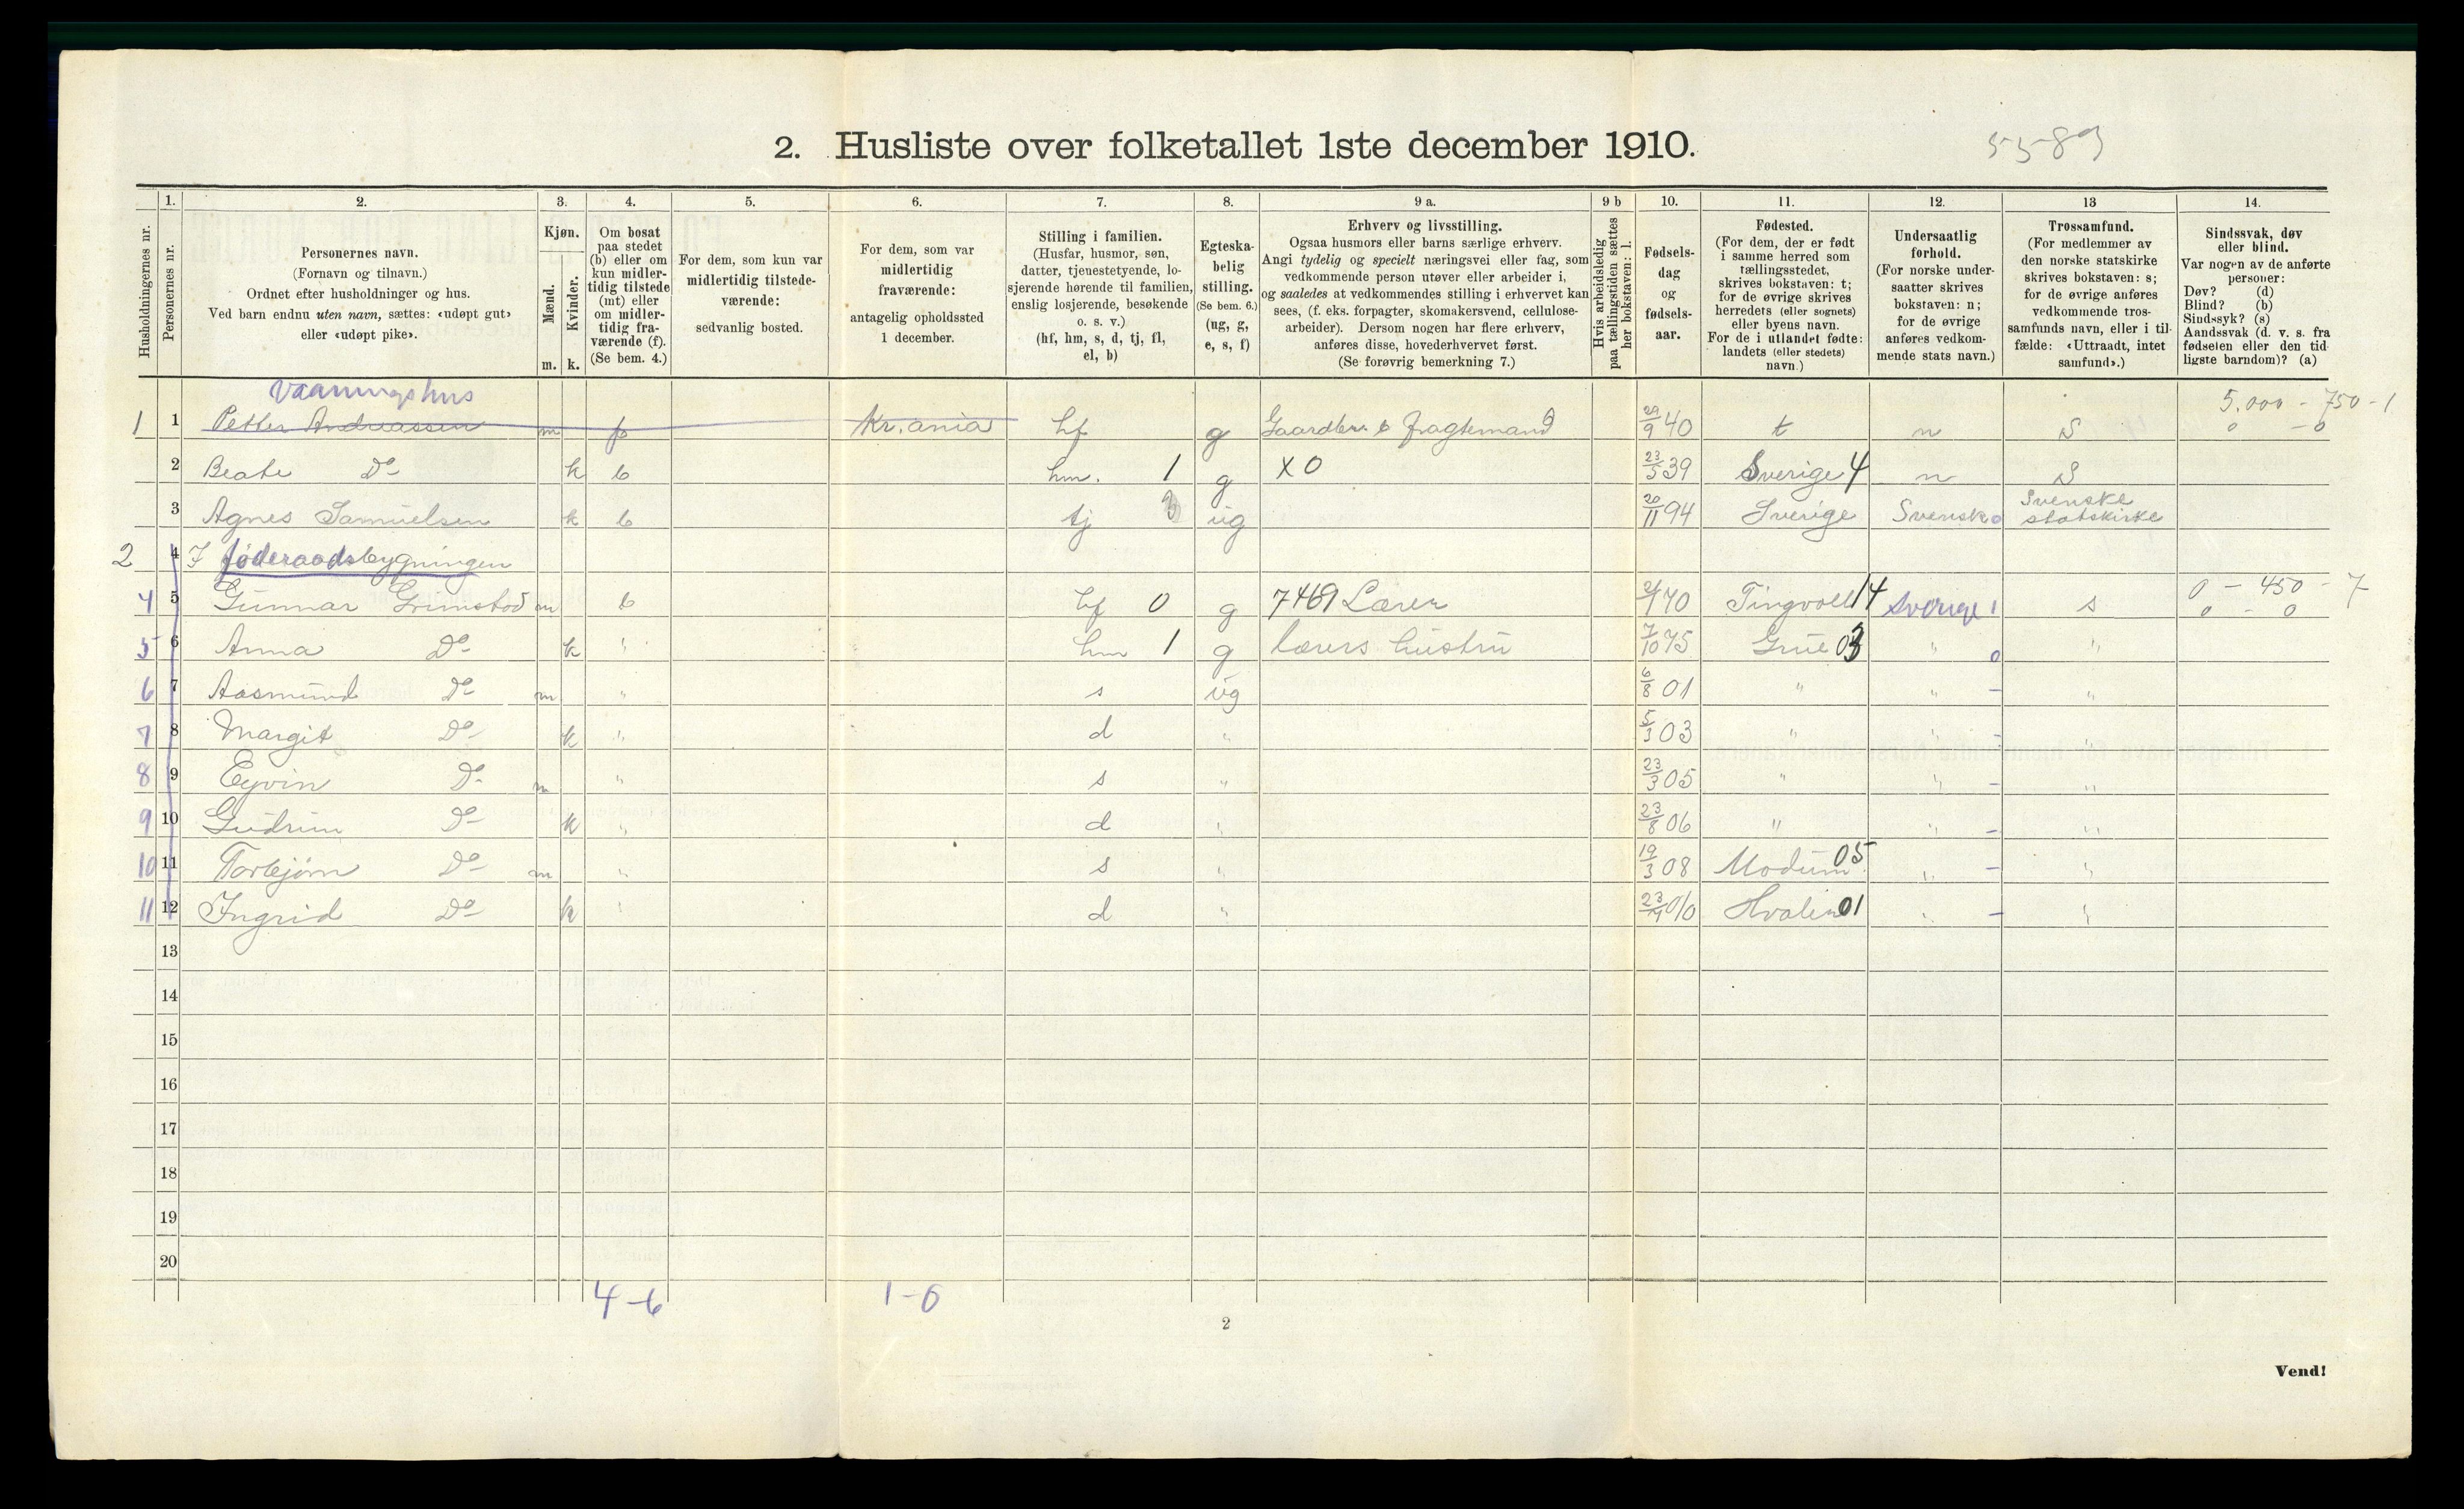 2. Husliste over folketallet 1ste december 1910.
55-83
1. 2. 3. 4. 5. 6. 7. 8. 9 a. 9 b 10. 11. 12. 13 14.
Husholdningernes nr.
Personernes nr.
Personernes navn.
(Fornavn og tilnavn.)
Ordnet efter husholdninger og hus.
Ved barn endnu uten navn, sættes: «udøpt gut»
eller «udøpt pike».
Kjøn.
Mænd.
m.
Kvinder.
k.
Om bosat
paa stedet
(b) eller om
kun midler-
tidig tilstede
(mt) eller
om midler-
tidig fra-
værende (f).
(Se bem. 4.)
For dem, som kun var
midlertidig tilstede-
værende:
sedvanlig bosted.
For dem, som var
midlertidig
fraværende:
antagelig opholdssted
1 december.
Stilling i familien.
(Husfar, husmor, søn,
datter, tjenestetyende, lo-
sjerende hørende til familien,
enslig losjerende, besøkende
o. s. v.)
(hf, hm, s, d, tj, fl,
el, b)
Egteska-
belig
stilling.
(Se bem. 6.)
(ug, g,
e, s, f)
Erhverv og livsstilling.
Ogsaa husmors eller barns særlige erhverv.
Angi tydelig og specielt næringsvei eller fag, som
vedkommende person utøver eller arbeider i,
og saaledes at vedkommendes stilling i erhvervet kan
sees, (f. eks. forpagter, skomakersvend, cellulose-
arbeider). Dersom nogen har flere erhverv,
anføres disse, hovederhvervet først.
(Se forøvrig bemerkning 7.)
Hvis arbeidsledig
paa tællingstiden sættes
her bokstaven: l.
Fødsels-
dag
og
fødsels-
aar.
Fødested.
(For dem, der er født
i samme herred som
tællingsstedet,
skrives bokstaven: t;
for de øvrige skrives
herredets (eller sognets)
eller byens navn.
For de i utlandet fødte:
landets (eller stedets)
navn.)
Undersaatlig
forhold.
(For norske under-
saatter skrives
bokstaven: n;
for de øvrige
anføres vedkom-
mende stats navn.)
Trossamfund.
(For medlemmer av
den norske statskirke
skrives bokstaven: s;
for de øvrige anføres
vedkommende tros-
samfunds navn, eller i til-
fælde: «Uttraadt, intet
samfund».)
Sindssvak, døv
eller blind.
Var nogen av de anførte
personer:
Døv? (d)
Blind? (b)
Sindssyk? (s)
Aandssvak (d. v. s. fra
fødselen eller den tid-
ligste barndom)? (a)
Vaaningshus
5.000 - 750 - 1
1 1 Petter Andreassen m f Kr.ania hf g Gaardbr. & fragtemand 29/9 40 t n S 0 - 0
2 Beate Do k b hm. 1 g X 0 23/5 39 Sverige 4 n S
3 Agnes Samuelsen k b tj 3 ug 20/11 94 Sverige Svensk 0 Svenske statskirke
2 4 I føderaadsbygningen
4 5 Gunnar Grimstad m b hf 0 g 7469 Lærer 2/1 70 Tingvoll 14 Sverige 1 s 0 - 450 - 7
0 - 0
5 6 Anna Do k " hm 1 g lærers hustru 7/10 75 Grue 03 " 0 "
6 7 Aasmund Do m " s ug 6/8 01 " " - "
7 8 Margit Do k " d " 5/3 03 " " - "
8 9 Eyvin Do m " s " 23/3 05 " " - "
9 10 Gudrun Do k " d " 23/8 06 " " - "
10 11 Torbjørn Do m " s " 19/3 08 Modum 05 " - "
11 12 Ingrid Do k " d " 23/4 010 Hvaler 01 " - "
13
14
15
16
17
18
19
20
4-6 1-0
2
Vend!